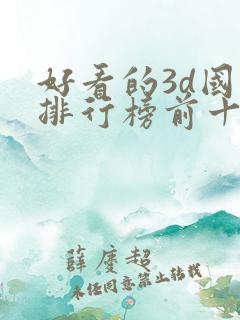 好看的3d國
排行榜前十
薛慶超
未经同意禁止转载